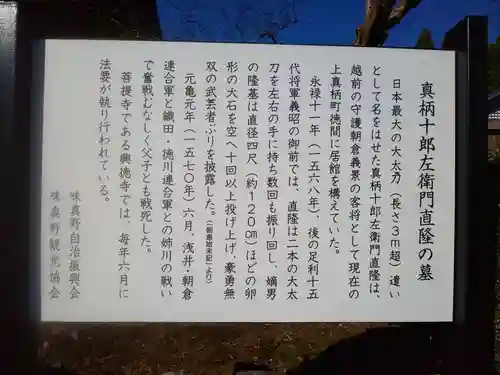 真柄十郎左衛門直隆の墓
日本最大の大太刀（長さ３ｍ超）遣い
として名をはせた真柄十郎左衛門直隆は、
越前の守護朝倉義景の客将として現在の
上真柄町徳間に居館を構えていた。
永禄十一年（一五六八年）、後の足利十五
代将軍義昭の御前では、直隆は二本の大太
刀を左右の手に持ち数回も振り回し、嫡男
の隆基は直径四尺（約１２０ｃｍ）ほどの卵
形の大石を空へ十回以上投げ上げ、豪勇無
双の武芸者ぶりを披露した。（「朝倉始末記」より）
元亀元年（一五七〇年）六月、浅井・朝倉
連合軍と織田・徳川連合軍との姉川の戦い
で奮戦むなしく父子とも戦死した。
菩提寺である興徳寺では、毎年六月に
法要が執り行われている。
味真野自治振興会
味真野観光協会